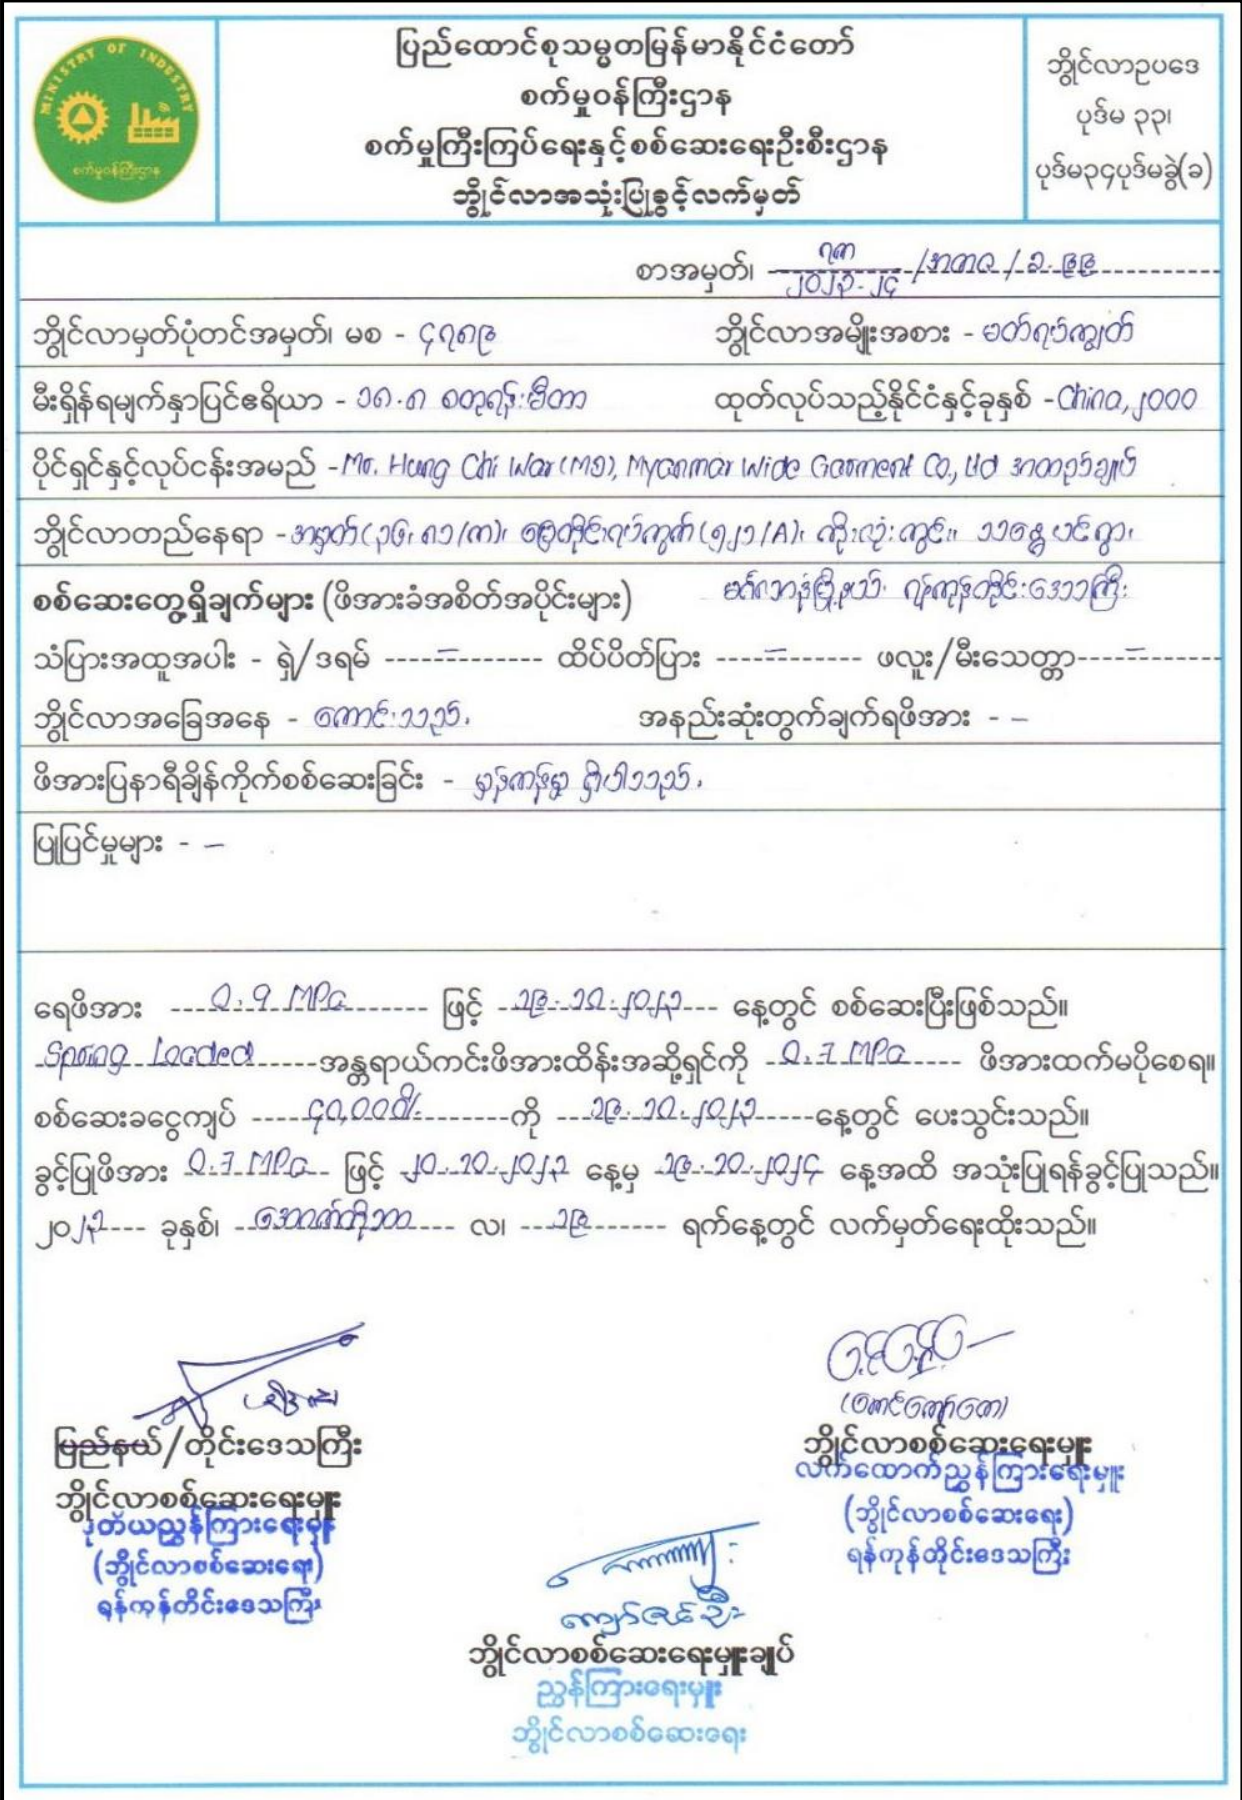 MINISTRY OF INDUSTRY
စက်မှုဝန်ကြီးဌာန
ပြည်ထောင်စုသမ္မတမြန်မာနိုင်ငံတော်
စက်မှုဝန်ကြီးဌာန
စက်မှုကြီးကြပ်ရေးနှင့်စစ်ဆေးရေးဦးစီးဌာန
ဘွိုင်လာအသုံးပြုခွင့်လက်မှတ်
ဘွိုင်လာဥပဒေ
ပုဒ်မ ၃၃၊
ပုဒ်မ၃၄ပုဒ်မခွဲ(ခ)
စာအမှတ်၊ ၂၀၂၃-၂၄
ဘွိုင်လာမှတ်ပုံတင်အမှတ်၊ မစ - ၄၇၈၉ ဘွိုင်လာအမျိုးအစား - မတ်ရပ်ကျွတ်
မီးရှိန်ရမျက်နှာပြင်ဧရိယာ - ၁၈.၈ စတုရန်းမီတာ ထုတ်လုပ်သည့်နိုင်ငံနှင့်ခုနှစ် - China, ၂၀၀၀
ပိုင်ရှင်နှင့်လုပ်ငန်းအမည် - Mr. Hung Chi War (MD), Myanmar Wide Garment Co., Ltd အထည်ချုပ်
ဘွိုင်လာတည်နေရာ - အမှတ်(၃၆၊ ၈၁/က)၊ မြေတိုင်းရပ်ကွက်(၅၂၁/A)၊ ကိုးလုံးကွင်း၊ သဓ္ဓပင်ရွာ၊
စစ်ဆေးတွေ့ရှိချက်များ (ဖိအားခံအစိတ်အပိုင်းများ) မင်္ဂလာဒုံမြို့နယ်၊ ရန်ကုန်တိုင်းဒေသကြီး
သံပြားအထူအပါး - ရှဲ/ဒရမ် - ထိပ်ပိတ်ပြား - ဖလူး/မီးသေတ္တာ -
ဘွိုင်လာအခြေအနေ - ကောင်းသည်။ အနည်းဆုံးတွက်ချက်ရဖိအား - -
ဖိအားပြနာရီချိန်ကိုက်စစ်ဆေးခြင်း - မှန်ကန်မှု ရှိပါသည်။
ပြုပြင်မှုများ - -
ရေဖိအား 0.9 MPa ဖြင့် ၁၉.၁၀.၂၀၂၃ နေ့တွင် စစ်ဆေးပြီးဖြစ်သည်။
Spring Loaded အန္တရာယ်ကင်းဖိအားထိန်းအဆို့ရှင်ကို 0.7 MPa ဖိအားထက်မပိုစေရ။
စစ်ဆေးခငွေကျပ် ၄၀,၀၀၀/- ကို ၁၉.၁၀.၂၀၂၃ နေ့တွင် ပေးသွင်းသည်။
ခွင့်ပြုဖိအား 0.7 MPa ဖြင့် ၂၀.၁၀.၂၀၂၃ နေ့မှ ၁၉.၁၀.၂၀၂၄ နေ့အထိ အသုံးပြုရန်ခွင့်ပြုသည်။
၂၀၂၃ ခုနှစ်၊ အောက်တိုဘာ လ၊ ၁၉ ရက်နေ့တွင် လက်မှတ်ရေးထိုးသည်။
ပြည်နယ်/တိုင်းဒေသကြီး
ဘွိုင်လာစစ်ဆေးရေးမှူး
ဒုတိယညွှန်ကြားရေးမှူး
(ဘွိုင်လာစစ်ဆေးရေး)
ရန်ကုန်တိုင်းဒေသကြီး
(အောင်ကျော်ဇော)
ဘွိုင်လာစစ်ဆေးရေးမှူး
လက်ထောက်ညွှန်ကြားရေးမှူး
(ဘွိုင်လာစစ်ဆေးရေး)
ရန်ကုန်တိုင်းဒေသကြီး
ကျော်ဇင်ဦး
ဘွိုင်လာစစ်ဆေးရေးမှူးချုပ်
ညွှန်ကြားရေးမှူး
ဘွိုင်လာစစ်ဆေးရေး